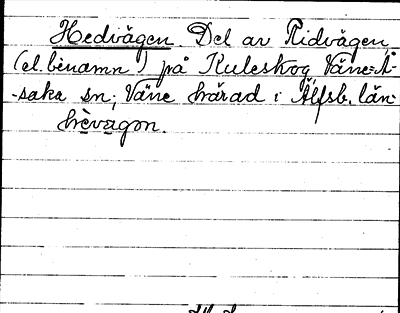 Hedvägen. Del av Ridvägen,
(el. binamn) på Kuleskog Väne-Å-
-saka sn; Väne härad i Älfsb. län.
hèvagon.